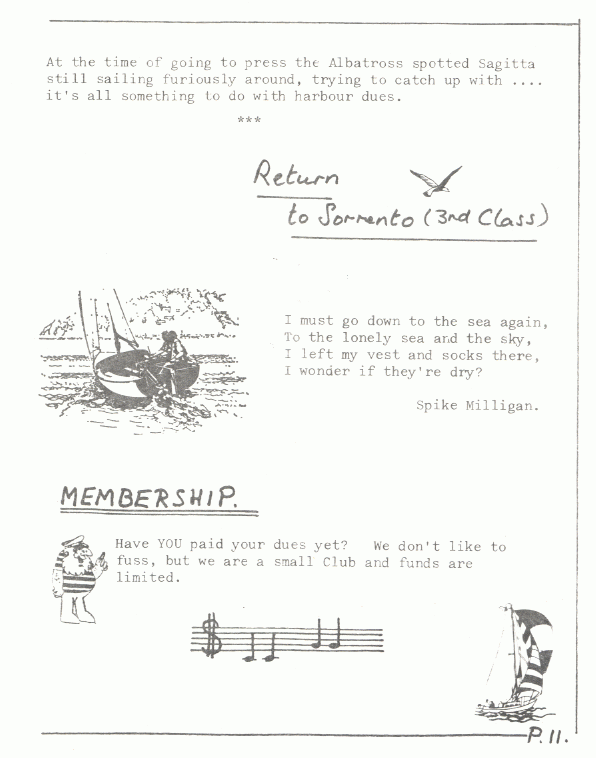 At the time of going to press the Albatross spotted Sagitta
still sailing furiously around, trying to catch up with ....
it's all something to do with harbour dues.
***
Return
to Sorrento (3rd Class)
I must go down to the sea again,
To the lonely sea and the sky,
I left my vest and socks there,
I wonder if they're dry?
Spike Milligan.
MEMBERSHIP.
Have YOU paid your dues yet? We don't like to
fuss, but we are a small Club and funds are
limited.
$
P.11.